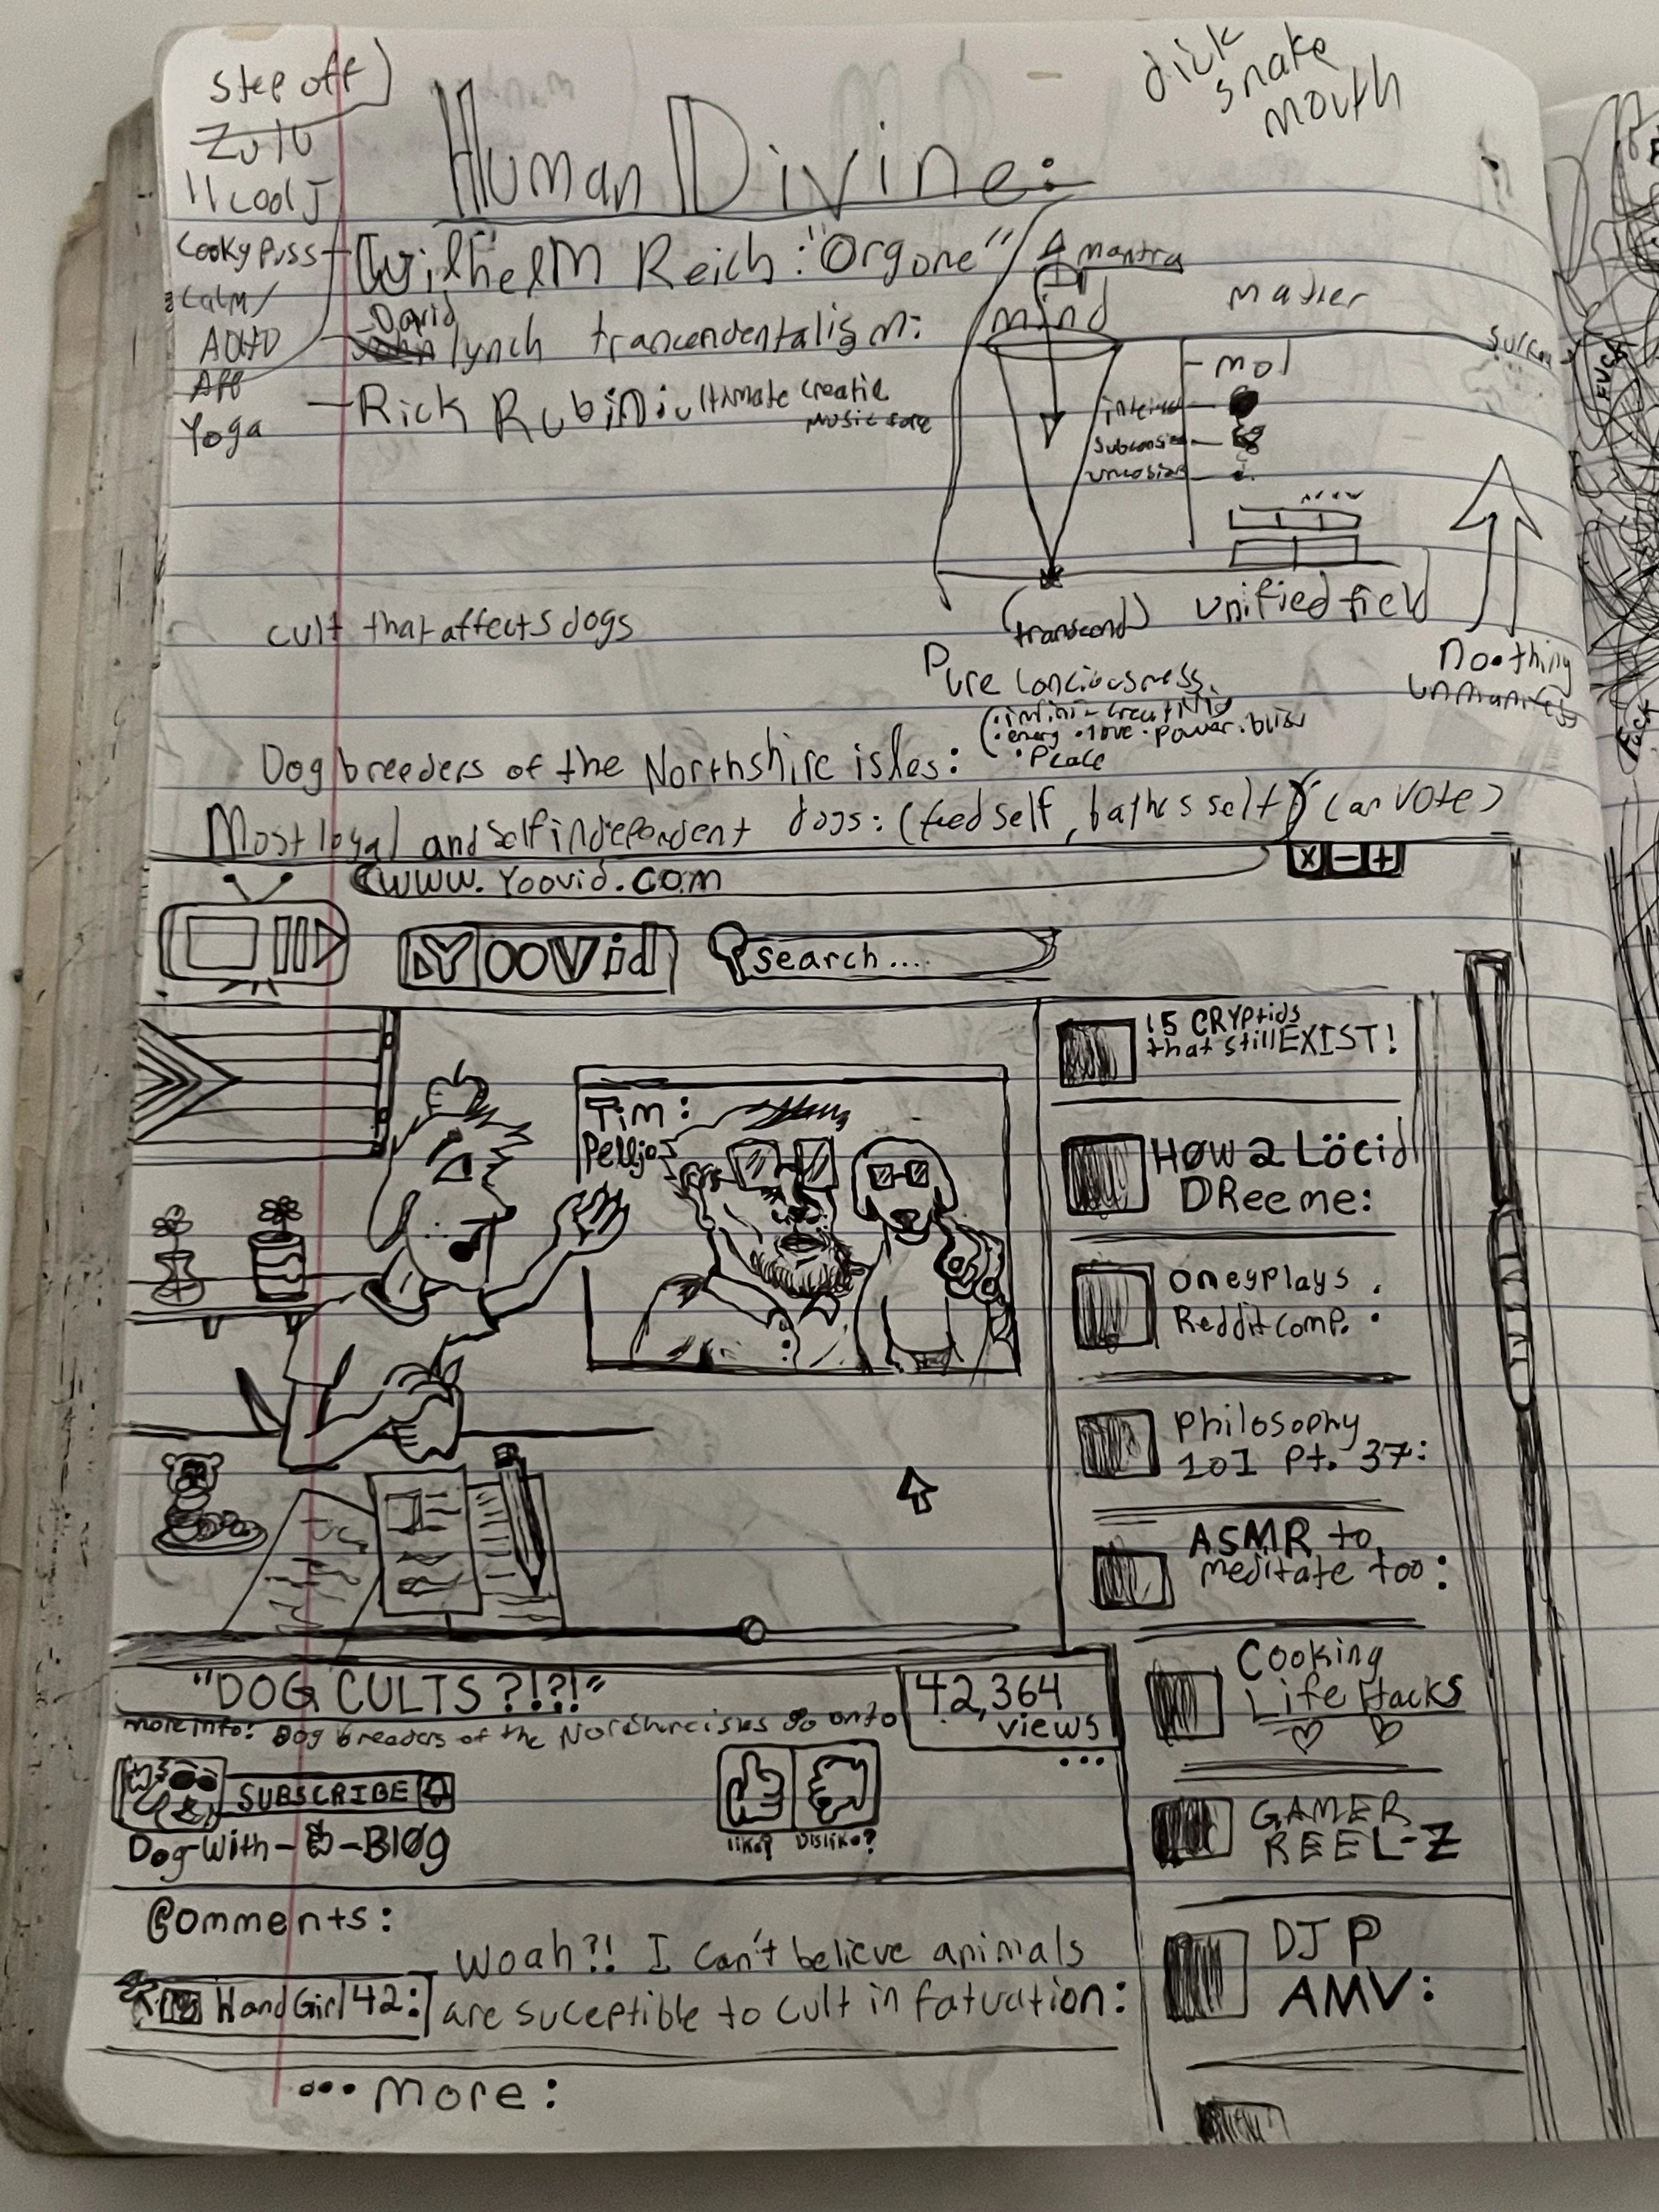 step off
Zulu
ll cool J
Cooky Puss
calm/
AUtO
App
Yoga
dick
snake
mouth
Human Divine:
Wilhelm Reich: "Orgone"
David
lynch trancendentalism:
Rick Rubin: ultimate creatie
music
mantra
mind
matier
mol
unified field
(transcend)
noothing
Pure conciousness
energy • love • power • bliss
• peace
FUCK
FUCK
cult that affects dogs
Dog breeders of the Northshire isles:
Most loyal and self independent dogs: (feed self, bathes self) (can vote)
www.Yoovid.com
X - +
YOOVid
search....
Tim:
15 CRYPtids
that still EXIST!
HØW 2 Löcid
DReeme:
oneyplays
Reddit comp. :
Philosophy
101 Pt. 37:
ASMR to
meditate too:
Cooking
Life Hacks
GAMER
REEL-Z
DJ P
AMV:
"DOG CULTS?!?!"
42,364
views
more info: Dog breeders of the go onto
...
SUBSCRIBE
Dog-With- -Bløg
like? Dislike?
Comments:
HandGirl42:
Woah?! I can't believe animals
are suceptible to cult in fatuation:
... more: